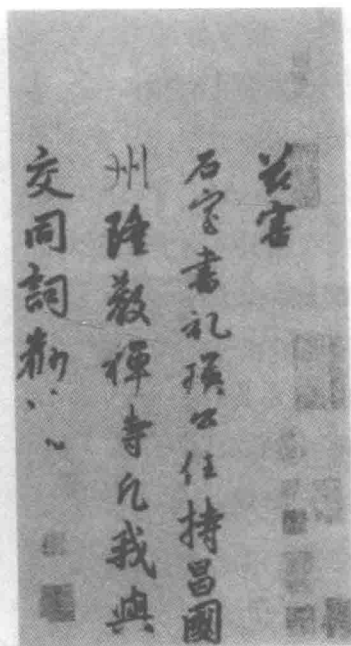 茲審
石室書記瑛公住持昌國
州隆教禪寺凡我與
交同詞勸